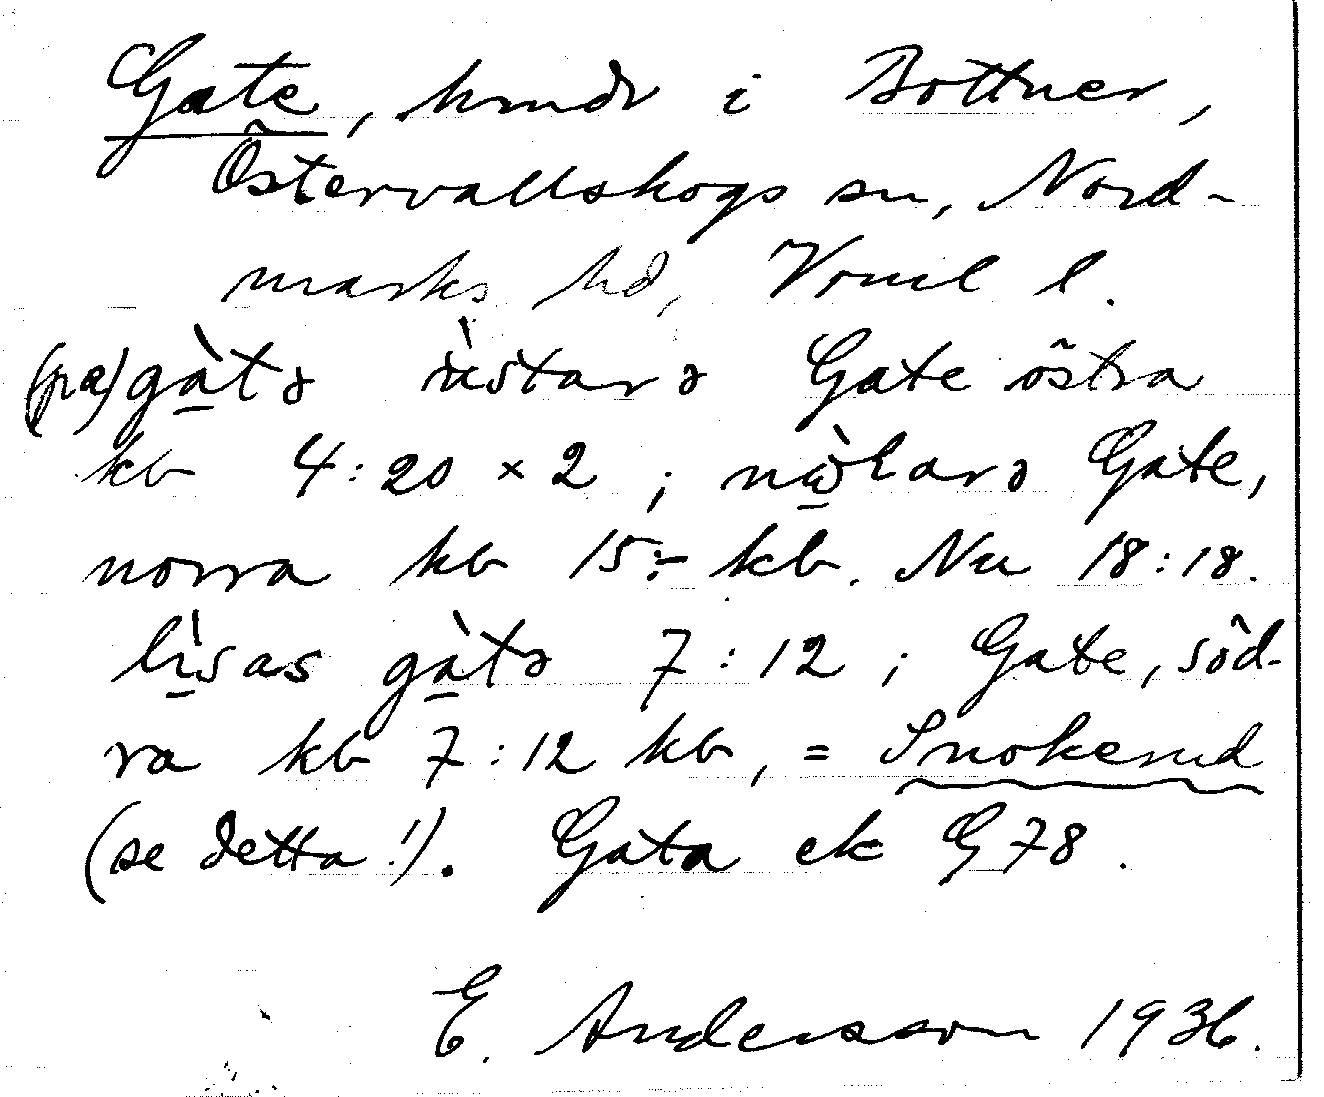 Gate, hmdr i Bottner,
Östervallskogs sn, Nord-
marks hd, Vrml l.
(pa) gàtə ùstarə Gate östra
kb 4:20 × 2 ; nòlarə Gate,
norra kb 15:- kb. Nu 18:18.
lìsas gàtə 7:12 ; Gate, söd-
ra kb 7:12 kb, = Snokerud
(se detta!). Gata ek G 78.
E. Andersson 1936.